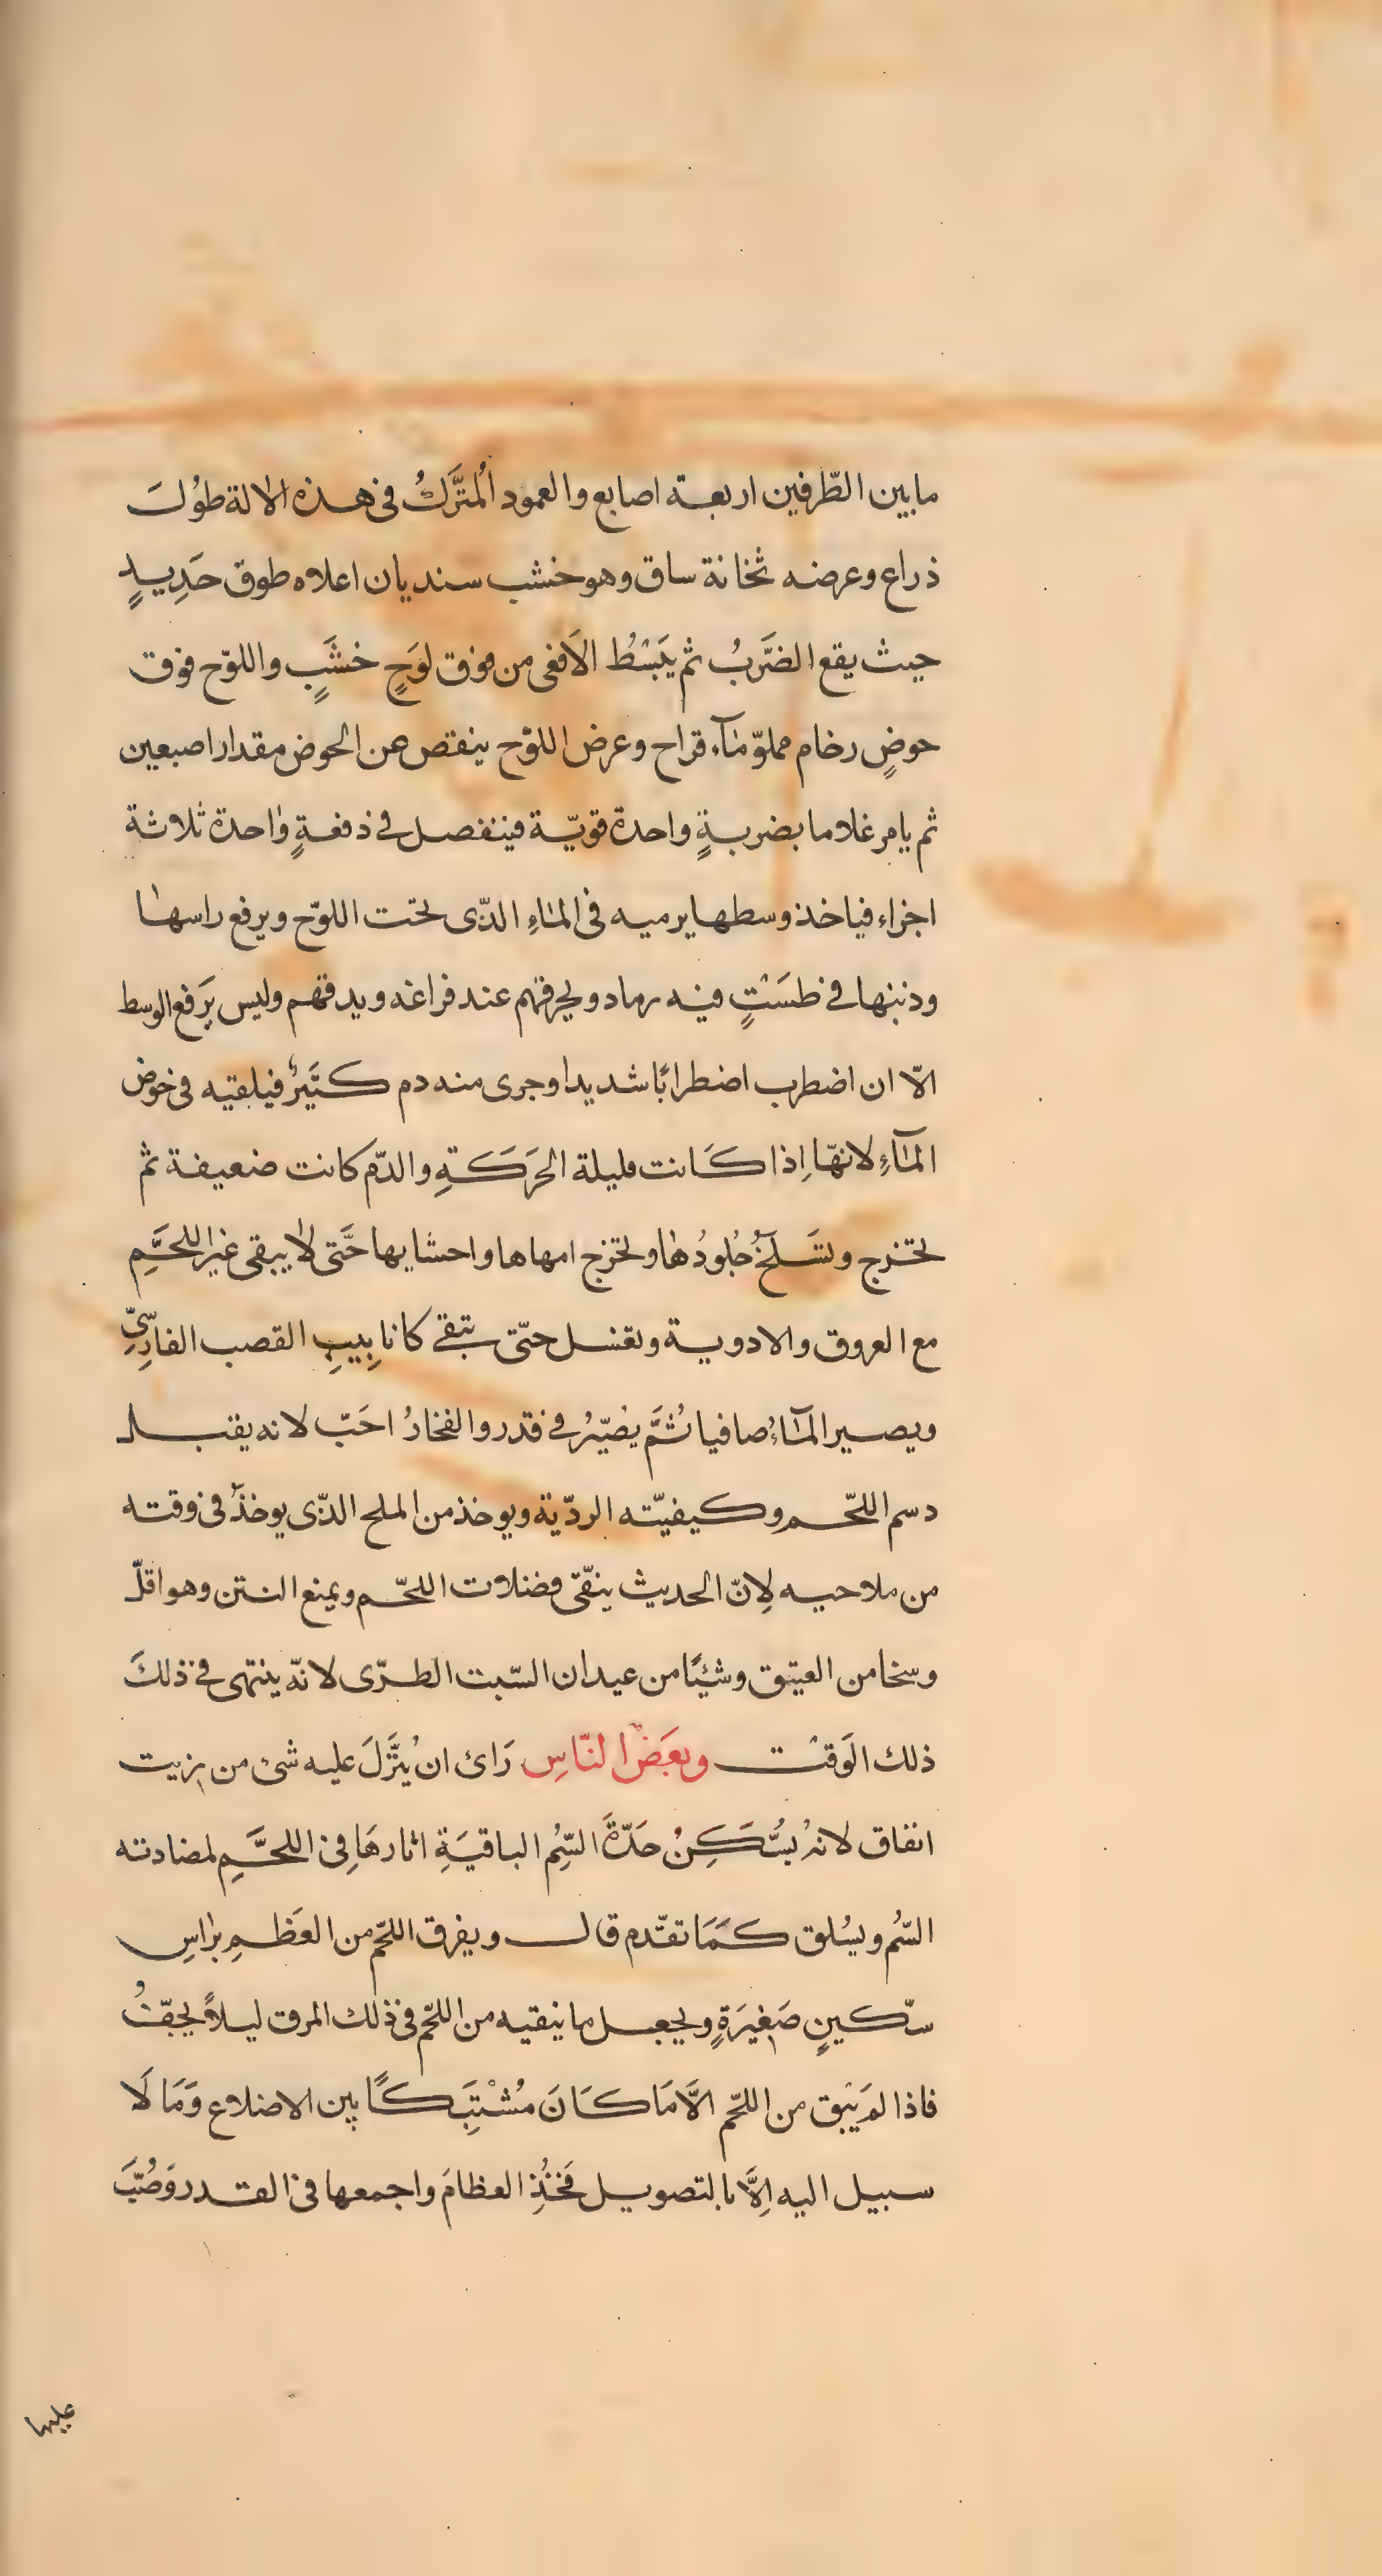 مابين الطّرفين اربعة اصابع والعمود المُتَرَّكُ فى هذه الالة طوُلَ
ذراع وعرضه ثخانة ساق وهو خشب سنديان اعلاه طوق حَدِيدٍ
حيث يقع الضَّربُ ثم يَبَسْطُ الاَفعى من فوق لَوَحٍ خشَبٍ واللوّح فوق
حوضٍ رخام مملوّ مَآءٍ قراح وعرض اللوّح ينقص عن الحوض مقدار اصبعين
ثم يامر غلاما بضربةٍ واحدة قويّة فينفصل فى ذفعةٍ واحدة ثلاثة
اجزاء فياخذ وسطها يرميه فى الماءِ الذّى تحت اللوّح ويرفع راسها
وذنبها فى طسَتٍ فيه رماد ويحرقهم عند فراغه ويدقهم وليس يَرفع الوسط
الاّ ان اضطرب اضطرابًا شديدا وجرى منه دم كَثَيرٌ فيلقيه فى خوض
المآءِ لانهّا اِذا كَانت قليلة الحَرَكَةِ والدّم كانت ضعيفة ثم
تخرج وتسَلَخُ جُلوُدُها وتخرج امهاها واحشايها حَتَّى لا يبقى غير اللحَّمِ
مع العروق والادوية وتغسل حتّى تبقى كانابِيبِ القصب الفارِسِّىِّ
ويصير المآءُ صافيا ثُمَّ يصُيّرُ فى قدر والفخارُ احَبّ لانه يقبل
دسم اللحّم وكيفيّته الرديّة ويوخذ من الملح الذّى يوخذُ فى وقته
من ملاحيه لِانّ الحديث ينقّى فضلات اللحّم ويمنع النتن وهو اقلّ
وسخا من العيتق وشيئًا من عيدان السّبت الطرّى لانهّ ينتهى فى ذلكَ
ذلك الوَقتْ وبعَضُ النّاسِ رَائ انُ يُنَزَّلَ عليه شئ من زيت
انفاق لانهُ يسُّكَنِ حدَةَّ السِّمُ الباقيَةِ اثارهَا فِى اللحَّمِ لمضادته
السُّم ويسُلق كَمَا تقدّم قال ويفرق اللحّم من العَظمِ براسِ
سّكينٍ صَغِيرَةٍ ويجعل ما ينقيه من اللحّم فى ذلك المرق ليلاً يجفّفُ
فاذا لم يَبْق من اللحّم الاَّ مَا كَانَ مُشْتَبِكًا بين الاضلاع وَمَا لَا
سبيل اليه اِلاَّ بالتصويل فَخُذِ العظامَ واجمعها فى القدر وَصُبَّ
عليها